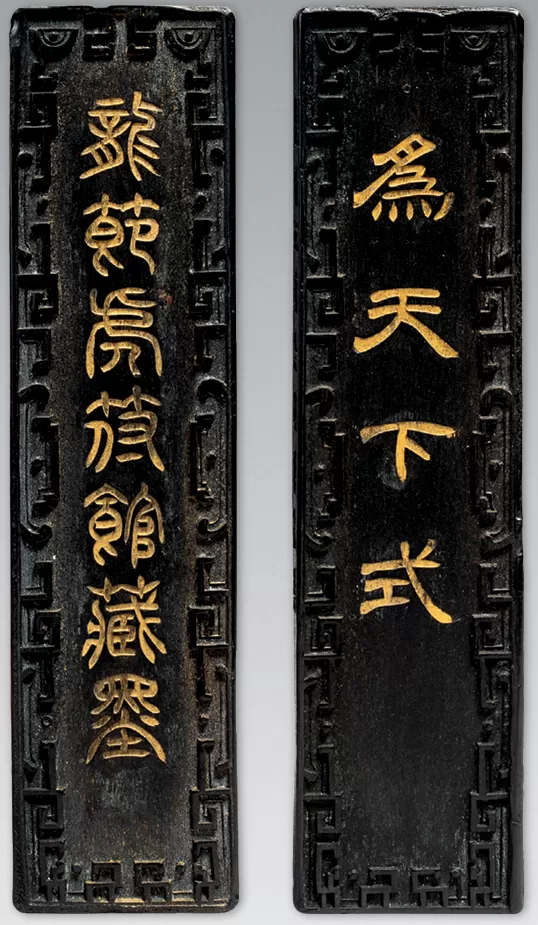 龍節虎符館藏墨
爲天下式